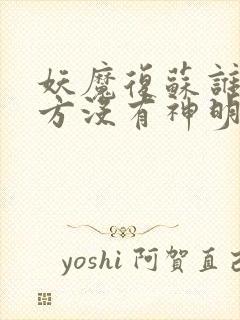 妖魔復蘇誰
方沒有神明
yoshi 阿賀直己